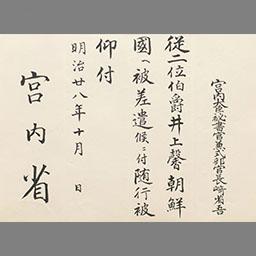 宮内大臣秘書官兼式部官長崎省吾
従二位伯爵井上馨朝鮮
國ヘ被差遣候ニ付随行被
仰付
明治廿八年十月　日
宮内省